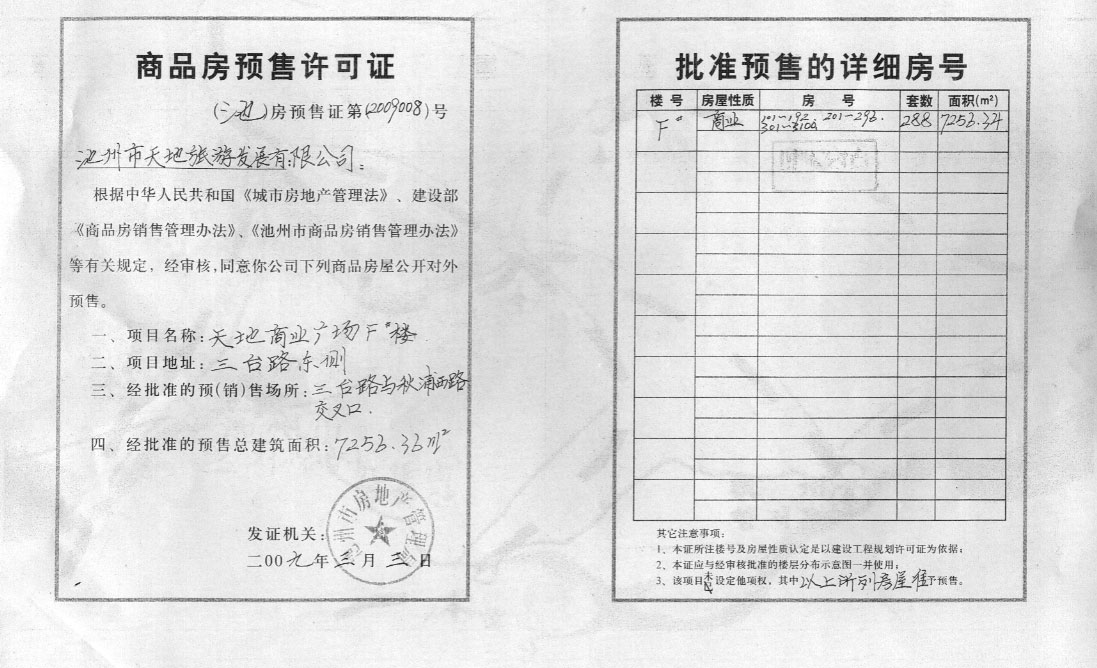 商品房预售许可证
(池)房预售证第(2009008)号
池州市天地旅游发展有限公司:
根据中华人民共和国《城市房地产管理法》、建设部
《商品房销售管理办法》、《池州市商品房销售管理办法》
等有关规定,经审核,同意你公司下列商品房屋公开对外
预售。
一、项目名称:天地商业广场F#楼
二、项目地址:三台路东侧
三、经批准的预(销)售场所:三台路与秋浦西路
交叉口.
四、经批准的预售总建筑面积:7256.36m²
池州市房地产管理局
发证机关:
二00九年三月三日
批准预售的详细房号
楼号 房屋性质 房号 套数 面积(m²)
F# 商业 101~192 201~296. 288
其它注意事项:
1、本证所注楼号及房屋性质认定是以建设工程规划许可证为依据;
2、本证应与经审核批准的楼层分布示意图一并使用;
3、该项目未设定他项权,其中以上所列房屋准予预售。